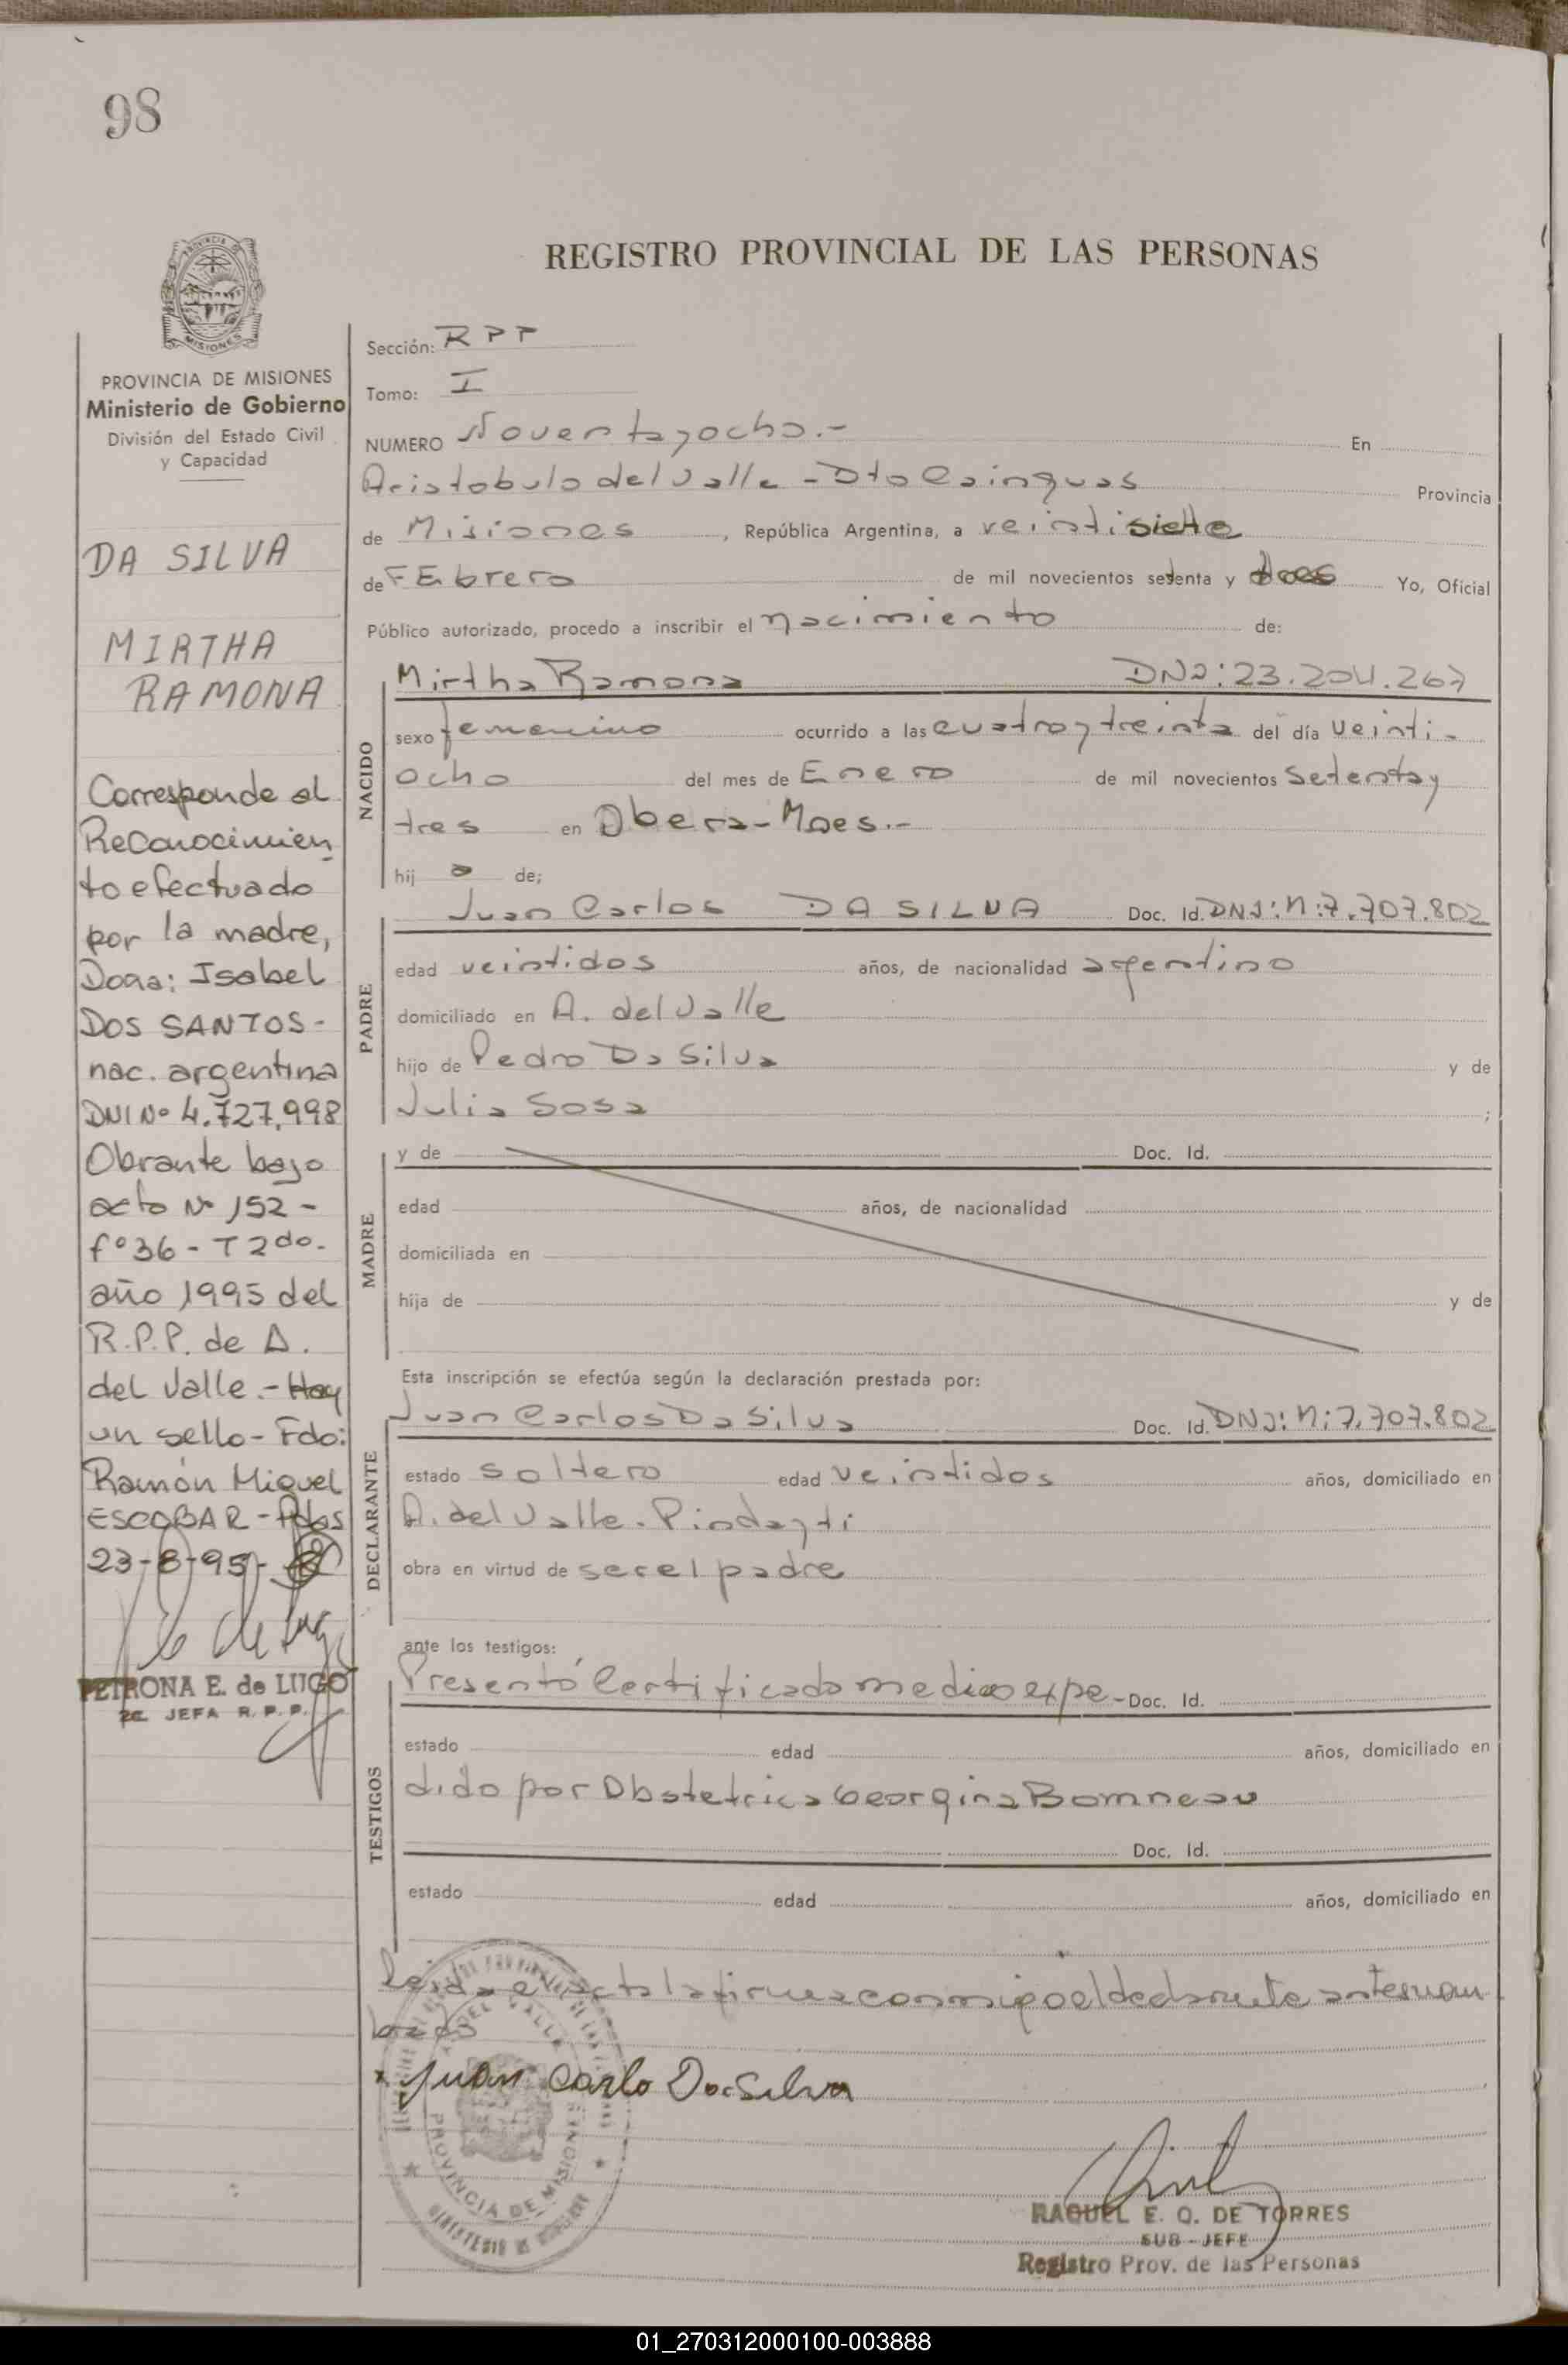 98
REGISTRO PROVINCIAL DE LAS PERSONAS
PROVINCIA DE MISIONES
Ministerio de Gobierno
División del Estado Civil
y Capacidad
DA SILVA
MIRTHA
RAMONA
Corresponde al
Reconocimien
to efectuado
por la madre,
Dona: Isabel
DOS SANTOS-
nac. argentina
DNI Nº 4.727.998
Obrante bajo
acto Nº 152-
fº 36 - T 2do.
año 1995 del
R.P.P. de A.
del Valle.- Hay
un sello- Fdo:
Ramón Miguel
ESCOBAR - Pdas
23-8-95-
PETRONA E. de LUGO
2ª JEFA R. P. P.
Sección: RPP
Tomo: I
NUMERO Noventayocho.- En
Aristobulo del Valle - Dto Cainguas Provincia
de Misiones , República Argentina, a veintisiete
de FEbrero de mil novecientos setenta y tres Yo, Oficial
Público autorizado, procedo a inscribir el nacimiento de:
NACIDO
Mirtha Ramona DNI: 23.204.267
sexo femenino ocurrido a las cuatro y treinta del día veinti-
ocho del mes de Enero de mil novecientos setenta y
tres en Obera-Mnes.-
hij a de;
PADRE
Juan Carlos DA SILVA Doc. Id. DNI: N: 7.707.802
edad veintidos años, de nacionalidad argentino
domiciliado en A. del Valle
hijo de Pedro Da Silva y de
Julia Sosa ;
MADRE
y de Doc. Id.
edad años, de nacionalidad
domiciliada en
hija de y de
Esta inscripción se efectúa según la declaración prestada por:
DECLARANTE
Juan Carlos Da Silva Doc. Id. DNI: N: 7.707.802
estado soltero edad veintidos años, domiciliado en
A. del Valle - Pindayti
obra en virtud de ser el padre
ante los testigos:
TESTIGOS
Presentó Certificado medico expe- Doc. Id.
estado edad años, domiciliado en
dido por Obstetrica Georgina Bomneau
Doc. Id.
estado edad años, domiciliado en
leida el acta la firma conmigo el declarante antes nom
brado
x Juan Carlo Da Silva
PROVINCIA DE MISIONES
RAQUEL E. Q. DE TORRES
SUB - JEFE
Registro Prov. de las Personas
01_270312000100-003888